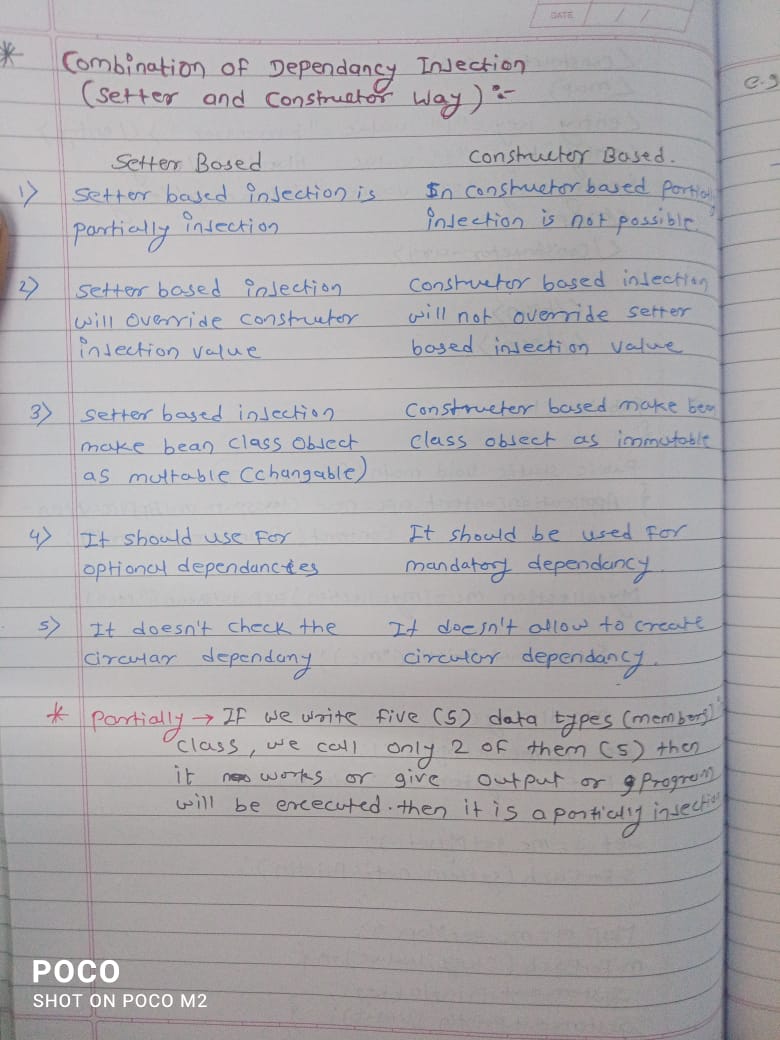 DATE
* Combination of Dependancy Injection
(setter and constructor way) :-
e.g
Setter Based
Constructor Based.
1) Setter based injection is
partially injection
In constructor based Partial
injection is not possible.
2) Setter based injection
will override constructor
injection value
Constructor based injection
will not override setter
based injection value
3) Setter based injection
make bean class object
as muttable (changable)
Constructor based make bean
class object as immutable
4) It should use for
optional dependancies
It should be used for
mandatory dependancy.
5) It doesn't check the
circular dependany
It doesn't allow to create
circular dependancy.
* Partially → If we write five (5) data types (members)
class, we call only 2 of them (5) then
it works or give output or program
will be excecuted. then it is a partially injection
POCO
SHOT ON POCO M2